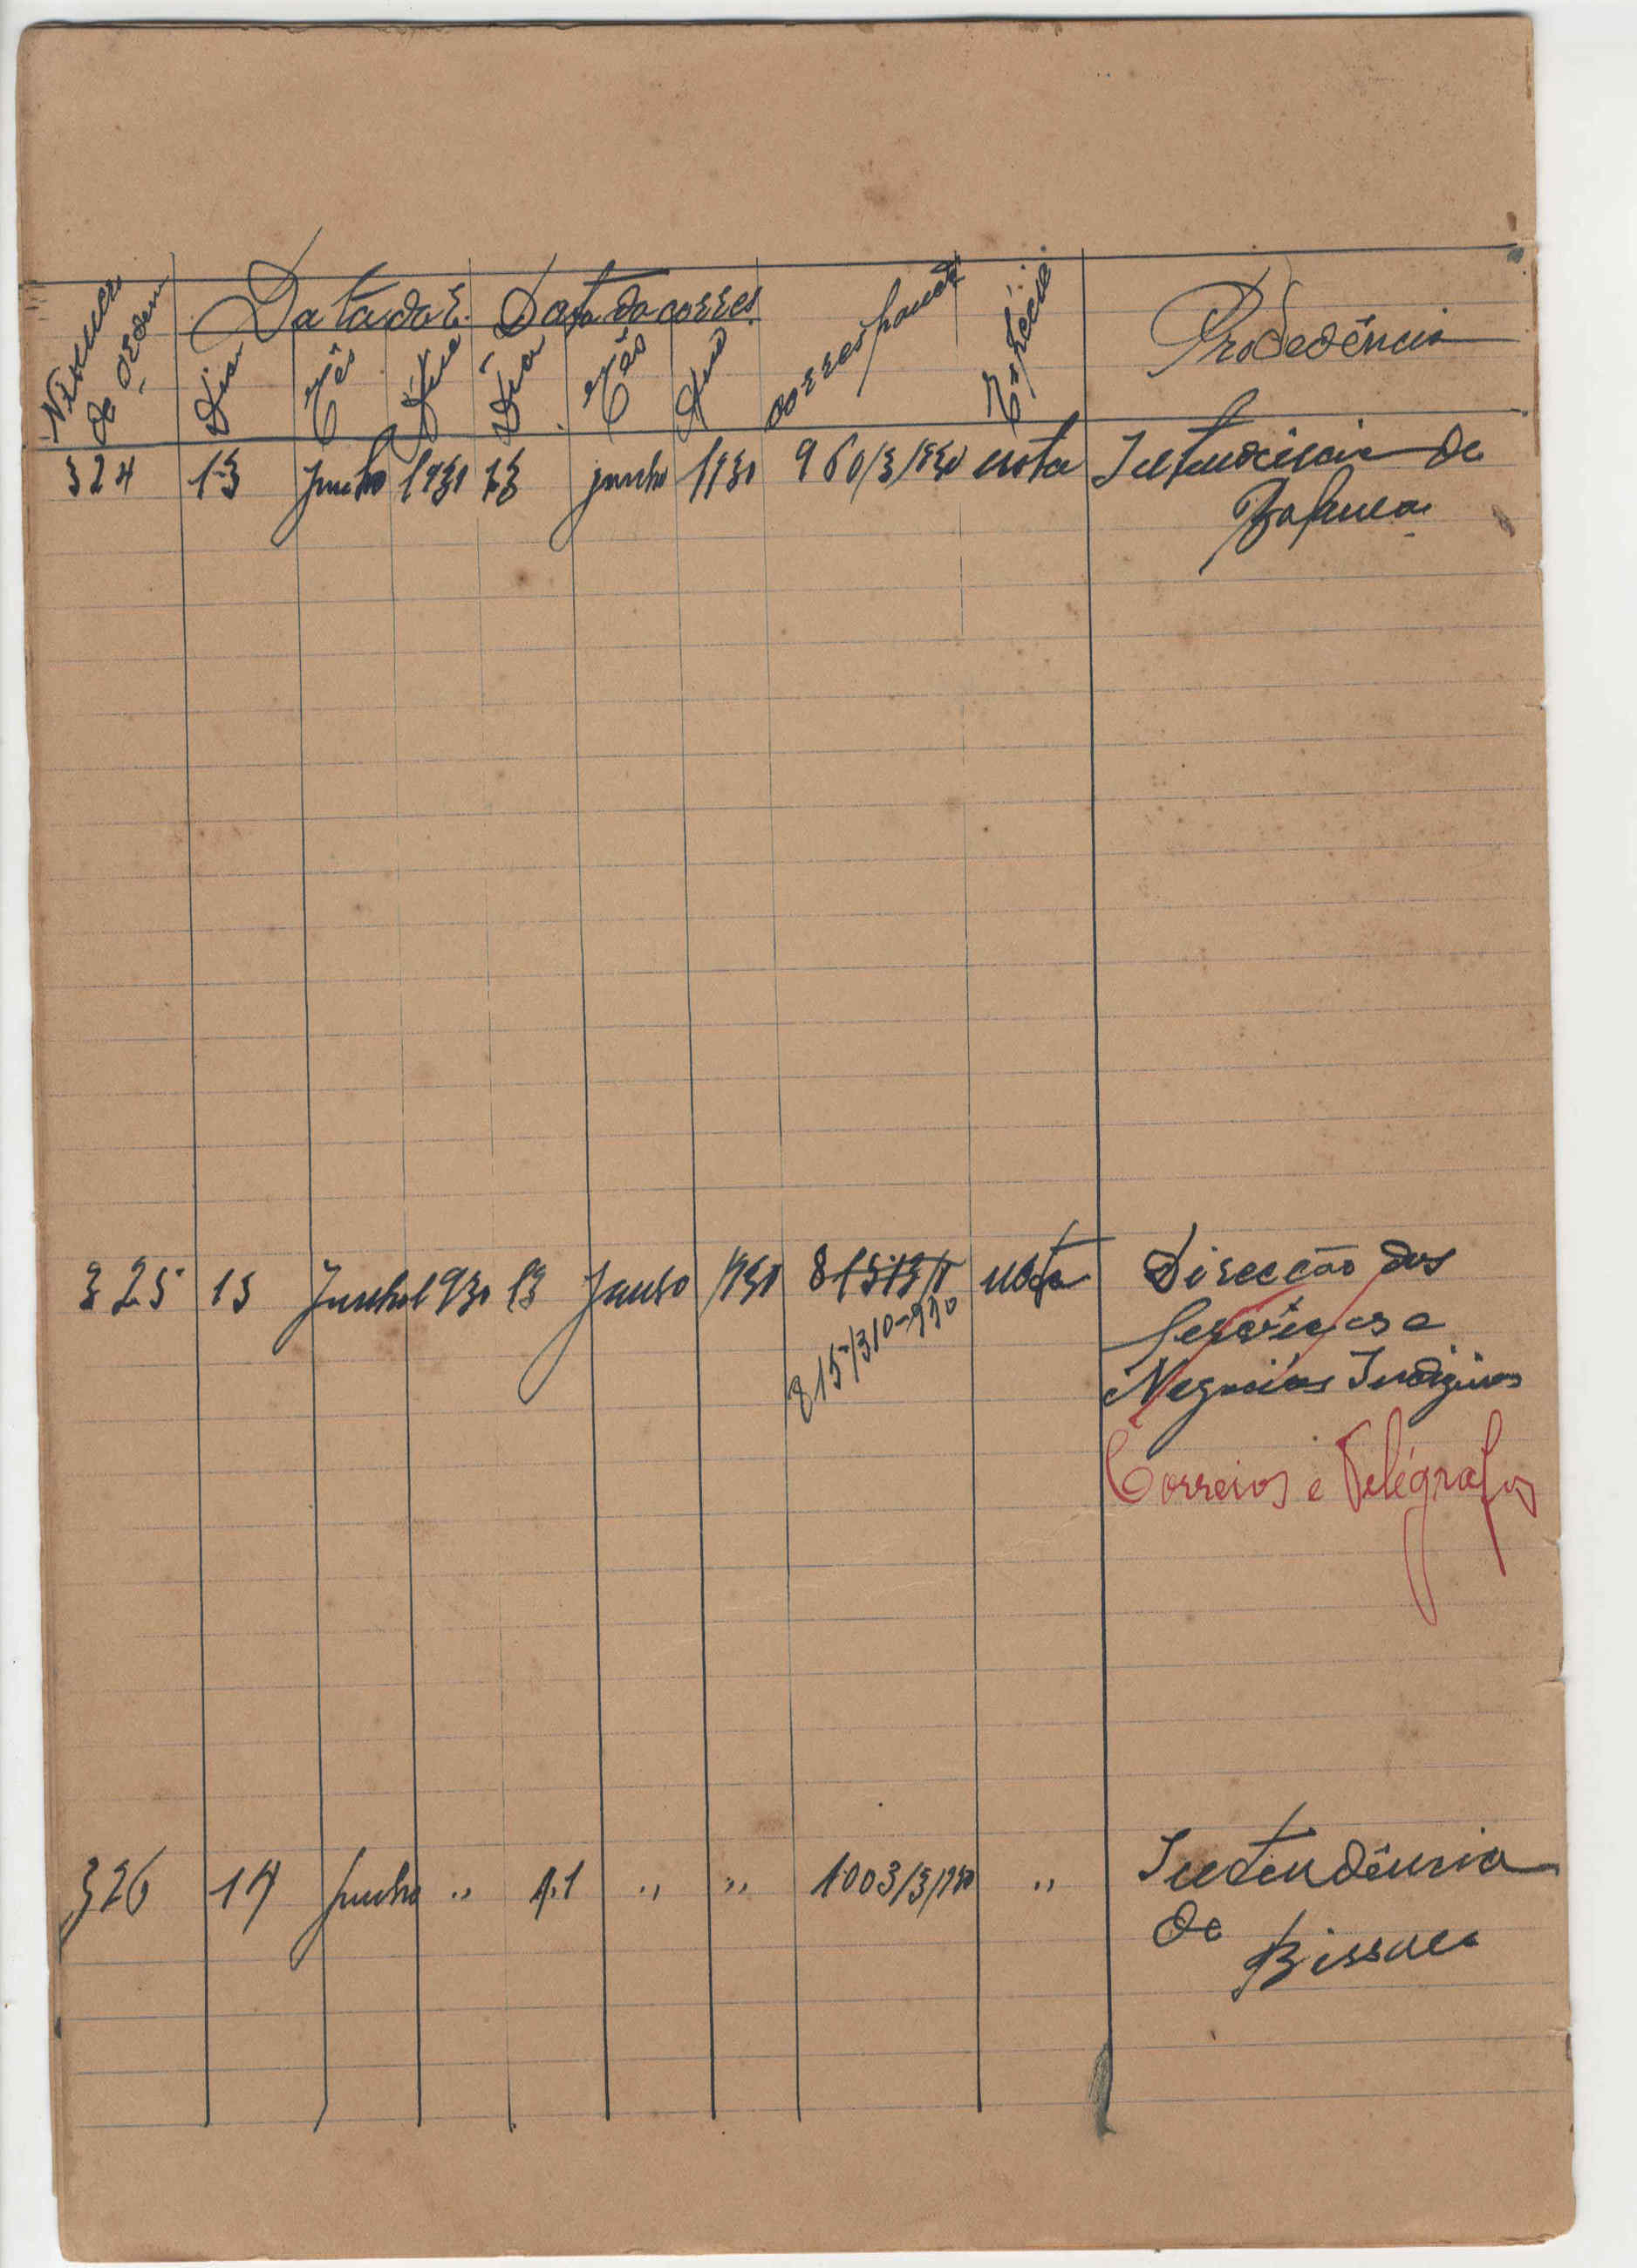 Número de ordem
Data da E. Data da corres.
Dia Mês Ano Dia Mês Ano correspond. Espécie Procedência
324 13 Junho 1930 13 junho 1930 960/3/930 nota Intendência de
Bafata
325 13 Junho 1930 13 Junho 1930 nota Direcção dos
815/310-930 Serviços e
Negócios Indígenas
Correios e Telégrafos
326 14 Junho " 11 " " 1003/3/930 " Intendência
de
Bissau